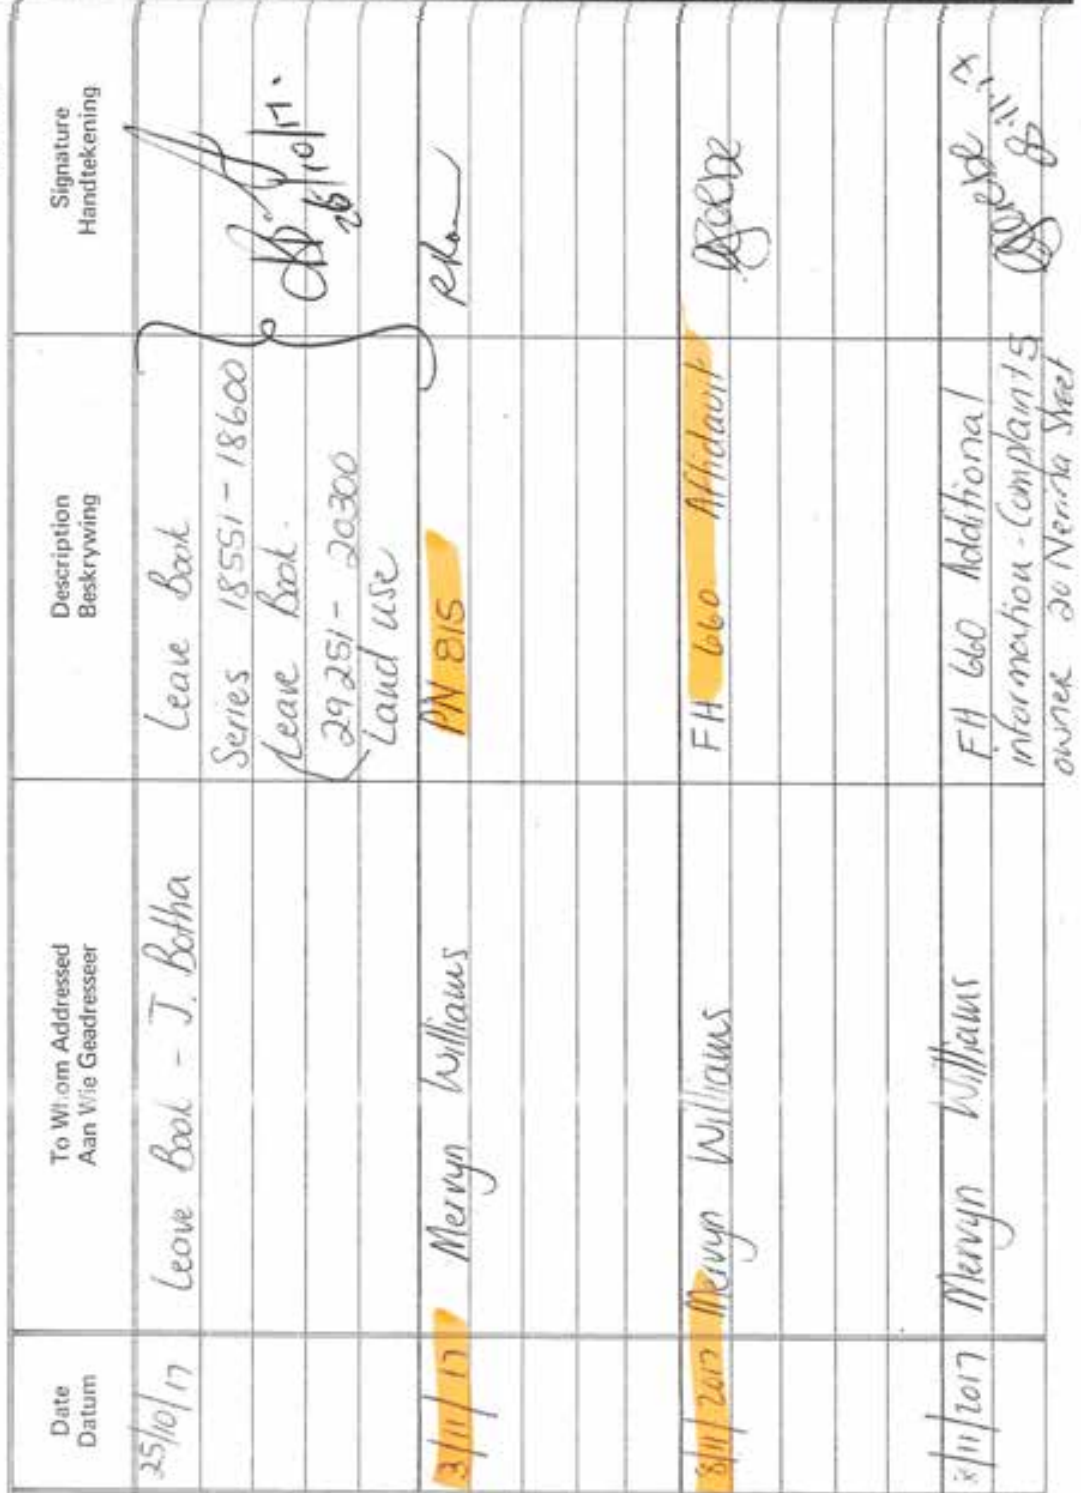 Date
Datum
To Whom Addressed
Aan Wie Geadresseer
Description
Beskrywing
Signature
Handtekening
25/10/17 Leave Book - J. Botha Leave Book
Series 18551 - 18600
Leave Book.
29251 - 20300
Land use
26/10/17.
3/11/17 Mervyn Williams PN 815
8/11/2017 Mervyn Williams FH 660 Affidavit
8/11/2017 Mervyn Williams FH 660 Additional
information - Complaints
owner 20 Nerina Street